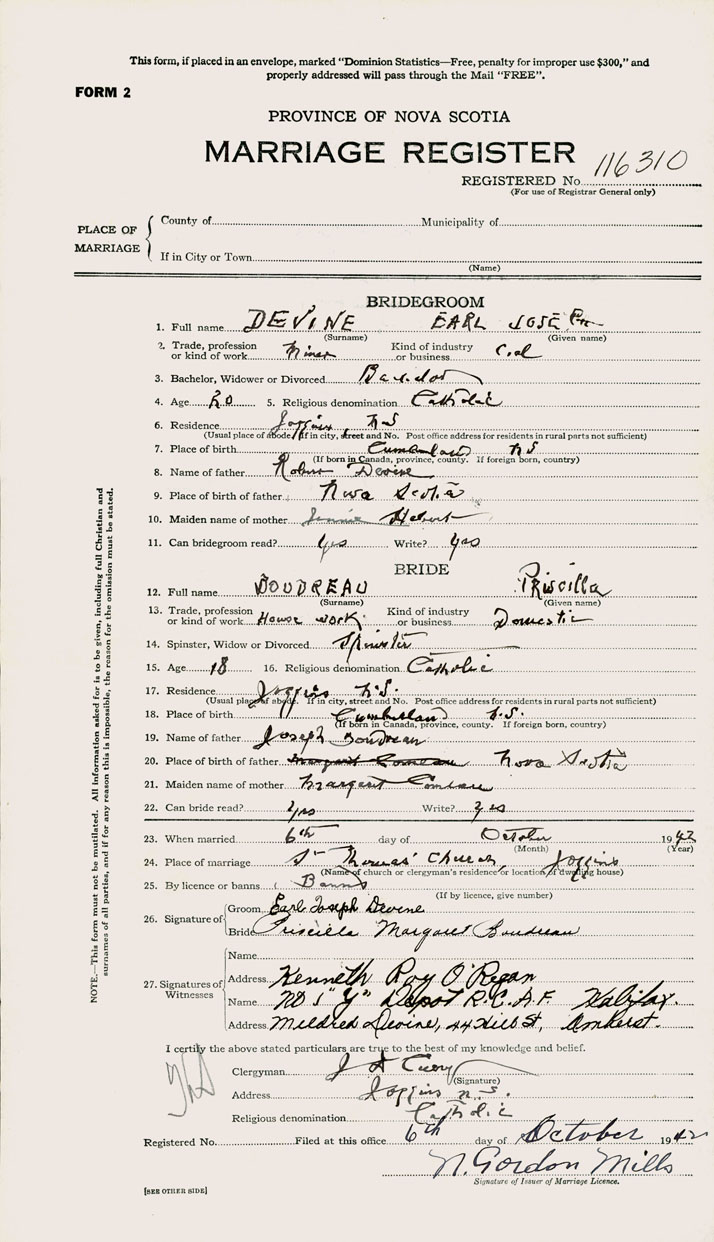 This form, if placed in an envelope, marked "Dominion Statistics—Free, penalty for improper use $300," and
properly addressed will pass through the Mail "FREE".
FORM 2
PROVINCE OF NOVA SCOTIA
MARRIAGE REGISTER
116310
REGISTERED No.
(For use of Registrar General only)
PLACE OF MARRIAGE
County of Municipality of
If in City or Town
(Name)
BRIDEGROOM
1. Full name DEVINE EARL JOSEPH
(Surname) (Given name)
2. Trade, profession or kind of work Miner Kind of industry or business Coal
3. Bachelor, Widower or Divorced Bachelor
4. Age 20 5. Religious denomination Catholic
6. Residence Joggins N S
(Usual place of abode. If in city, street and No. Post office address for residents in rural parts not sufficient)
7. Place of birth Cumberland N S
(If born in Canada, province, county. If foreign born, country)
8. Name of father Robert Devine
9. Place of birth of father Nova Scotia
10. Maiden name of mother Jennie Hebert
11. Can bridegroom read? yes Write? yes
BRIDE
12. Full name BOUDREAU Priscilla
(Surname) (Given name)
13. Trade, profession or kind of work House work Kind of industry or business Domestic
14. Spinster, Widow or Divorced Spinster
15. Age 18 16. Religious denomination Catholic
17. Residence Joggins N.S.
(Usual place of abode. If in city, street and No. Post office address for residents in rural parts not sufficient)
18. Place of birth Cumberland N.S.
(If born in Canada, province, county. If foreign born, country)
19. Name of father Joseph Boudreau
20. Place of birth of father Margaret Comeau Nova Scotia
21. Maiden name of mother Margaret Comeau
22. Can bride read? yes Write? yes
23. When married 6th day of October 1942
(Month) (Year)
24. Place of marriage St Thomas' Church, Joggins
(Name of church or clergyman's residence or location of dwelling house)
25. By licence or banns Banns
(If by licence, give number)
26. Signature of
Groom Earl Joseph Devine
Bride Priscilla Margaret Boudreau
27. Signatures of Witnesses
Name
Address Kenneth Roy O'Regan
Name No 1 "Y" Depot R.C.A.F. Halifax.
Address Mildred Devine, 44 Hill St, Amherst.
I certify the above stated particulars are true to the best of my knowledge and belief.
Clergyman J A
(Signature)
Address Joggins N.S.
Religious denomination Catholic
Registered No. Filed at this office 6th day of October 1942
N. Gordon Mills
Signature of Issuer of Marriage Licence.
[SEE OTHER SIDE]
NOTE.—This form must not be mutilated. All information asked for is to be given, including full Christian and
surnames of all parties, and if for any reason this is impossible, the reason for the omission must be stated.